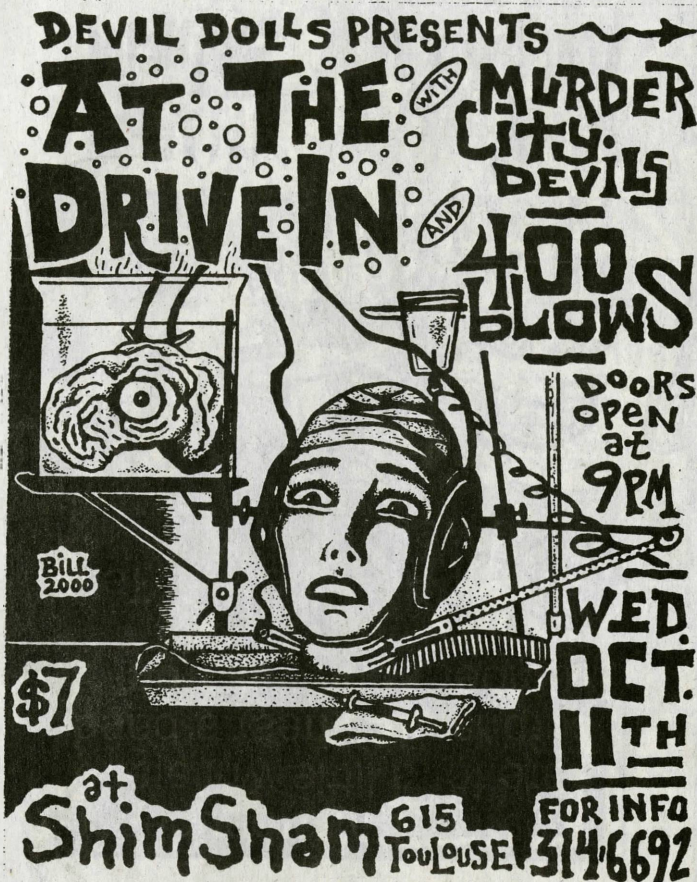 DEVIL DOLLS PRESENTS
AT THE
DRIVE IN
WITH
MURDER
CITY
DEVILS
AND
400
BLOWS
DOORS
OPEN
at
9PM
BILL
2000
WED.
OCT.
11TH
$7
at
Shim Sham
615
TOULOUSE
FOR INFO
314'6692